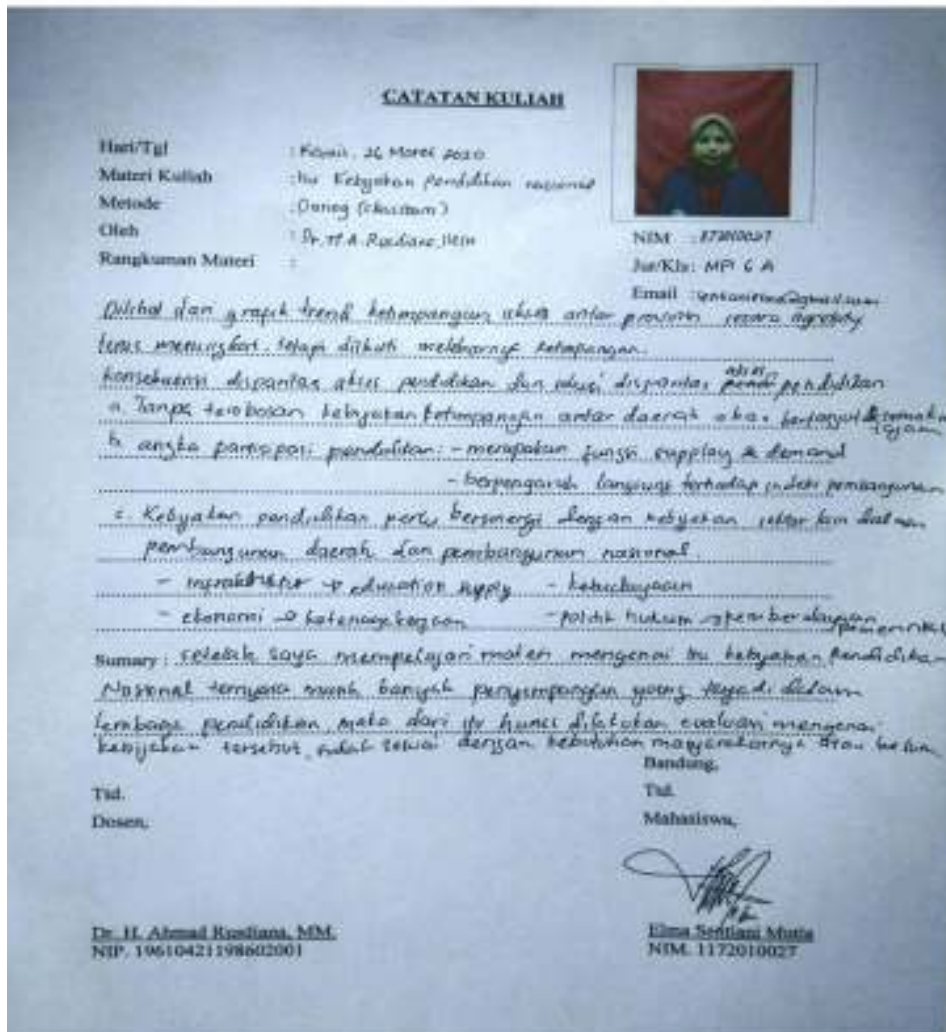 CATATAN KULIAH
Hari/Tgl : Kamis, 26 Maret 2020
Materi Kuliah : Isu Kebijakan pendidikan nasional
Metode : Daring (classroom)
Oleh : Dr. H. A. Rusdiana,
Rangkuman Materi :
NIM : 1172010027
Jur/Kls: MPI 6 A
Email :
Dilihat dari grafik trend ketimpangan akses antar provinsi secara
terus meningkat. tetapi diikuti melebarnya ketimpangan.
Konsekuensi disparitas akses pendidikan dan disparitas akses pendidikan
a. Tanpa terobosan kebijakan ketimpangan antar daerah akan berlanjut & semakin
tajam
b. angka partisipasi pendidikan: - merupakan fungsi supplay & demand
- berpengaruh langsung terhadap indeks pembangunan
c. Kebijakan pendidikan perlu bersinergi dengan kebijakan sektor lain dalam
pembangunan daerah dan pembangunan nasional.
- infrastruktur → education supply - kebudayaan
- ekonomi → ketenagakerjaan - politik hukum → pemberdayaan
Sumary : setelah saya mempelajari materi mengenai isu kebijakan Pendidikan
Nasional ternyata masih banyak penyimpangan yang terjadi dalam
lembaga pendidikan, maka dari itu harus dilakukan evaluasi mengenai
kebijakan tersebut, sudah sesuai dengan kebutuhan masyarakatnya atau belum
Bandung,
Ttd. Ttd.
Dosen, Mahasiswa,
Dr. H. Ahmad Rusdiana, MM. Elma Sentiani Mutia
NIP. 196104211986021001 NIM. 1172010027